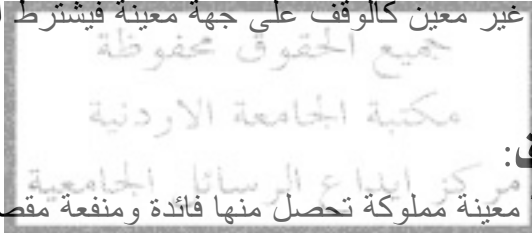 غير معين كالوقف على جهة معينة فيشترط
جميع الحقوق محفوظة
مكتبة الجامعة الاردنية
مركز ايداع الرسائل الجامعية
معينة مملوكة تحصل منها فائدة ومنفعة